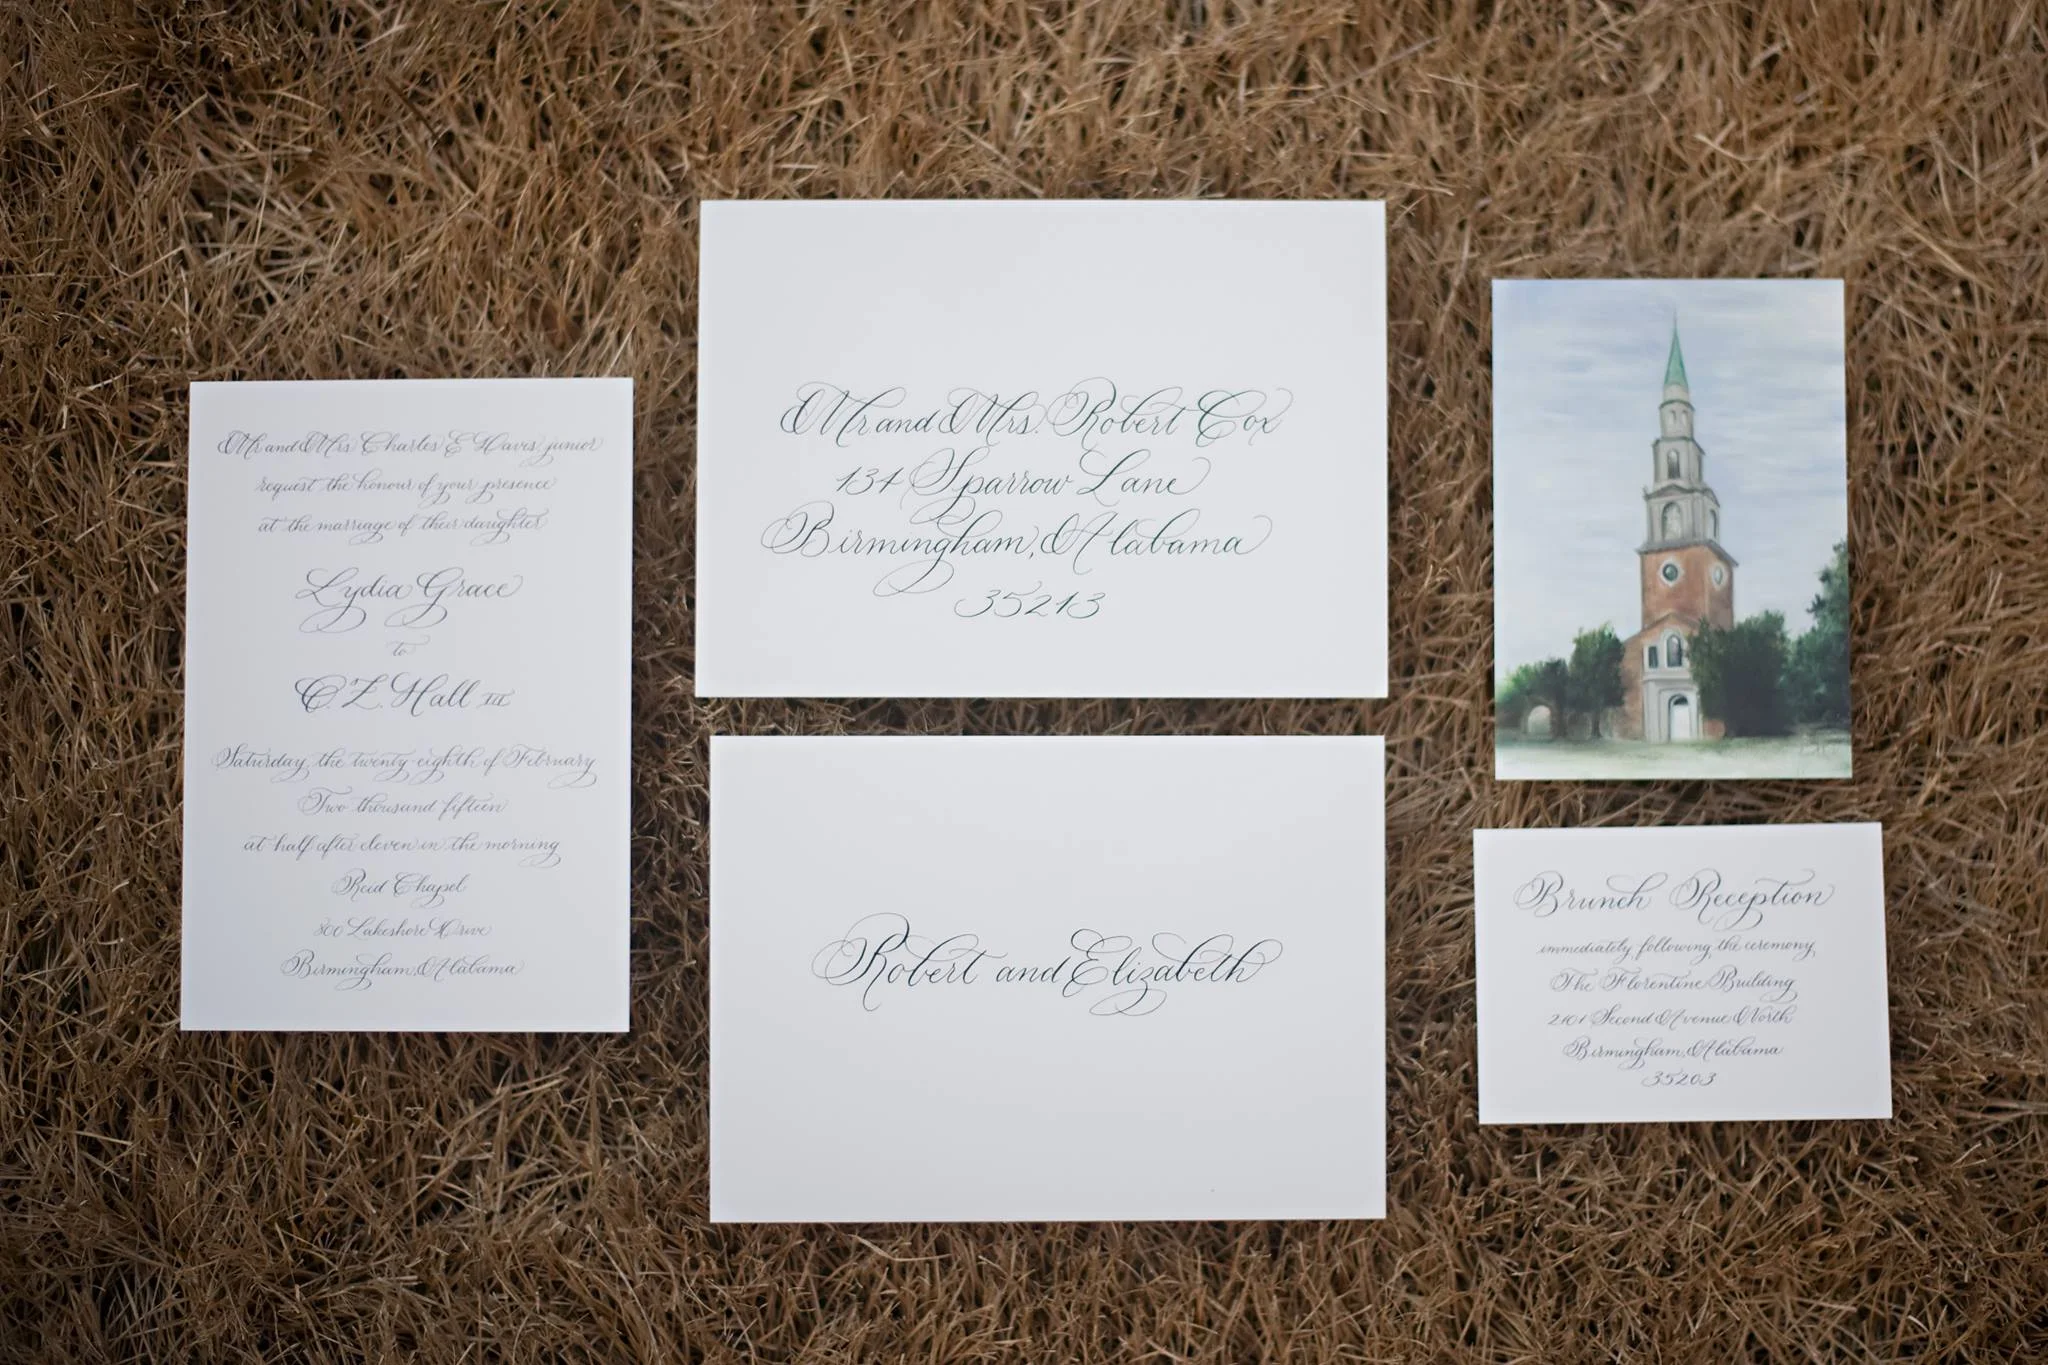 Mr and Mrs Charles E Havis, junior
request the honour of your presence
at the marriage of their daughter
Lydia Grace
to
C. Z. Hall III
Saturday, the twenty-eighth of February
Two thousand fifteen
at half after eleven in the morning
Reid Chapel
800 Lakeshore Drive
Birmingham, Alabama
Mr and Mrs. Robert Cox
134 Sparrow Lane
Birmingham, Alabama
35213
Robert and Elizabeth
Brunch Reception
immediately following the ceremony
The Florentine Building
2101 Second Avenue North
Birmingham, Alabama
35203